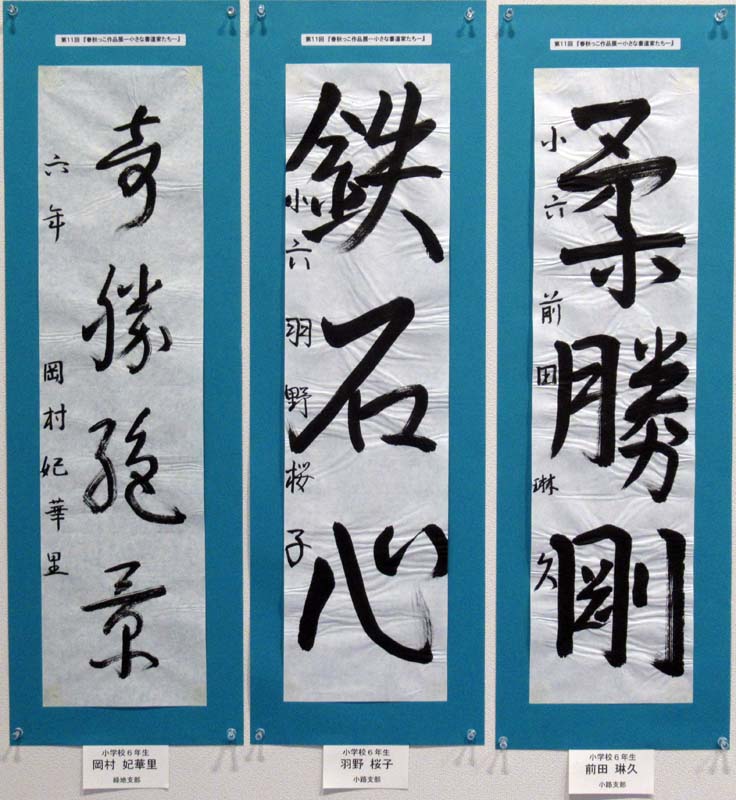 第11回 『春秋っこ作品展―小さな書道家たち―』
奇勝絶景
六年 岡村妃華里
小学校6年生
岡村 妃華里
緑地支部
第11回 『春秋っこ作品展―小さな書道家たち―』
鉄石心
小六 羽野桜子
小学校6年生
羽野 桜子
小路支部
第11回 『春秋っこ作品展―小さな書道家たち―』
柔勝剛
小六 前田琳久
小学校6年生
前田 琳久
小路支部